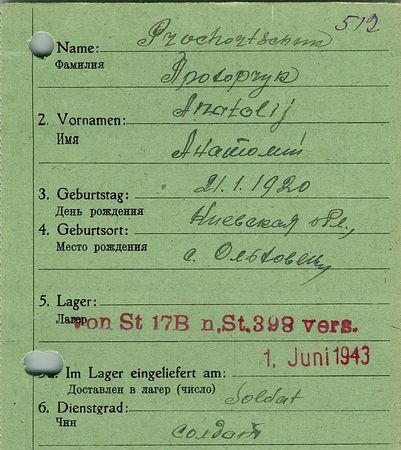 512
Name: Prochortschuk
Фамилия Прохорчук
2. Vornamen: Anatolij
Имя Анатолий
3. Geburtstag: 21.1.1920
День рождения
4. Geburtsort: Киевская обл.,
Место рождения с.
5. Lager:
Лагер
von St 17B n.St.398 vers.
1. Juni 1943
5a. Im Lager eingeliefert am:
Доставлен в лагер (число)
6. Dienstgrad: Soldat
Чин солдат